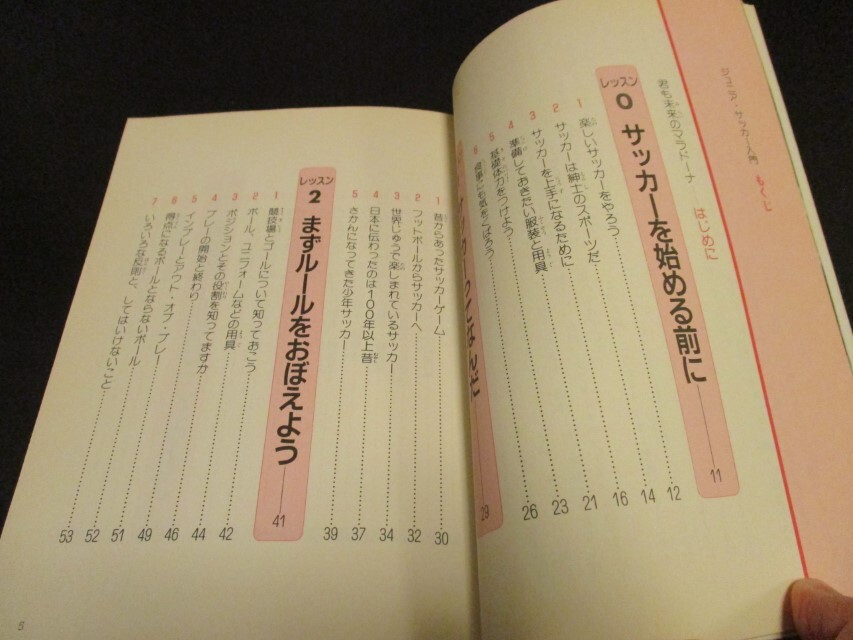 ジュニア・サッカー入門 もくじ
君も未来のマラドーナ はじめに
レッスン 0 サッカーを始める前に 11
1 楽しいサッカーをやろう 12
2 サッカーは紳士のスポーツだ 14
3 サッカーを上手になるために 16
4 準備しておきたい服装と用具 21
5 基礎体力をつけよう 23
6 食事にも気をつけよう 26
なんだ 29
1 昔からあったサッカーゲーム 30
2 フットボールからサッカーへ 32
3 世界じゅうで楽しまれているサッカー 34
4 日本に伝わったのは100年以上昔 37
5 さかんになってきた少年サッカー 39
レッスン 2 まずルールをおぼえよう 41
1 競技場とゴールについて知っておこう 42
2 ボール、ユニフォームなどの用具 44
3 ポジションとその役割を知ってますか 46
4 プレーの開始と終わり 49
5 インプレーとアウト・オブ・プレー 51
6 得点になるボールとならないボール 52
7 いろいろな反則と、してはいけないこと 53
5